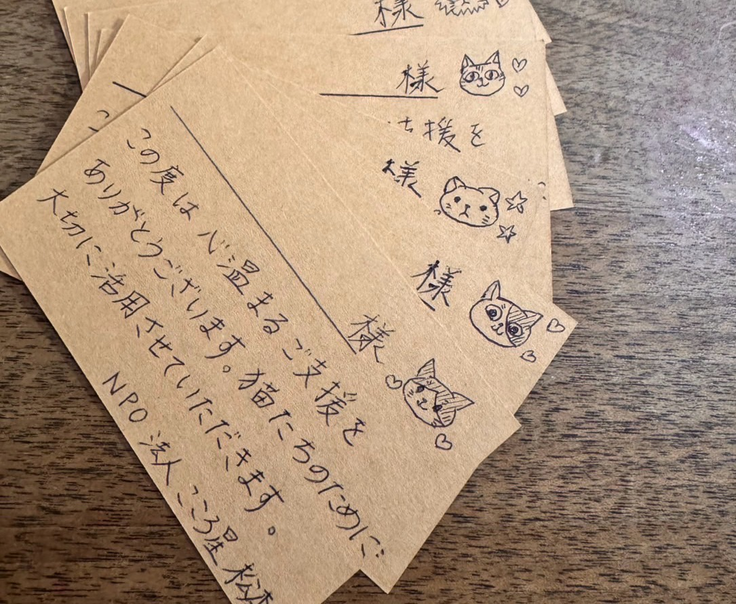 様
様
ち援を
様
様
様
この度は心温まるご支援を
ありがとうございます。猫たちのために
大切に活用させていただきます。
NPO法人 こころ星 松本